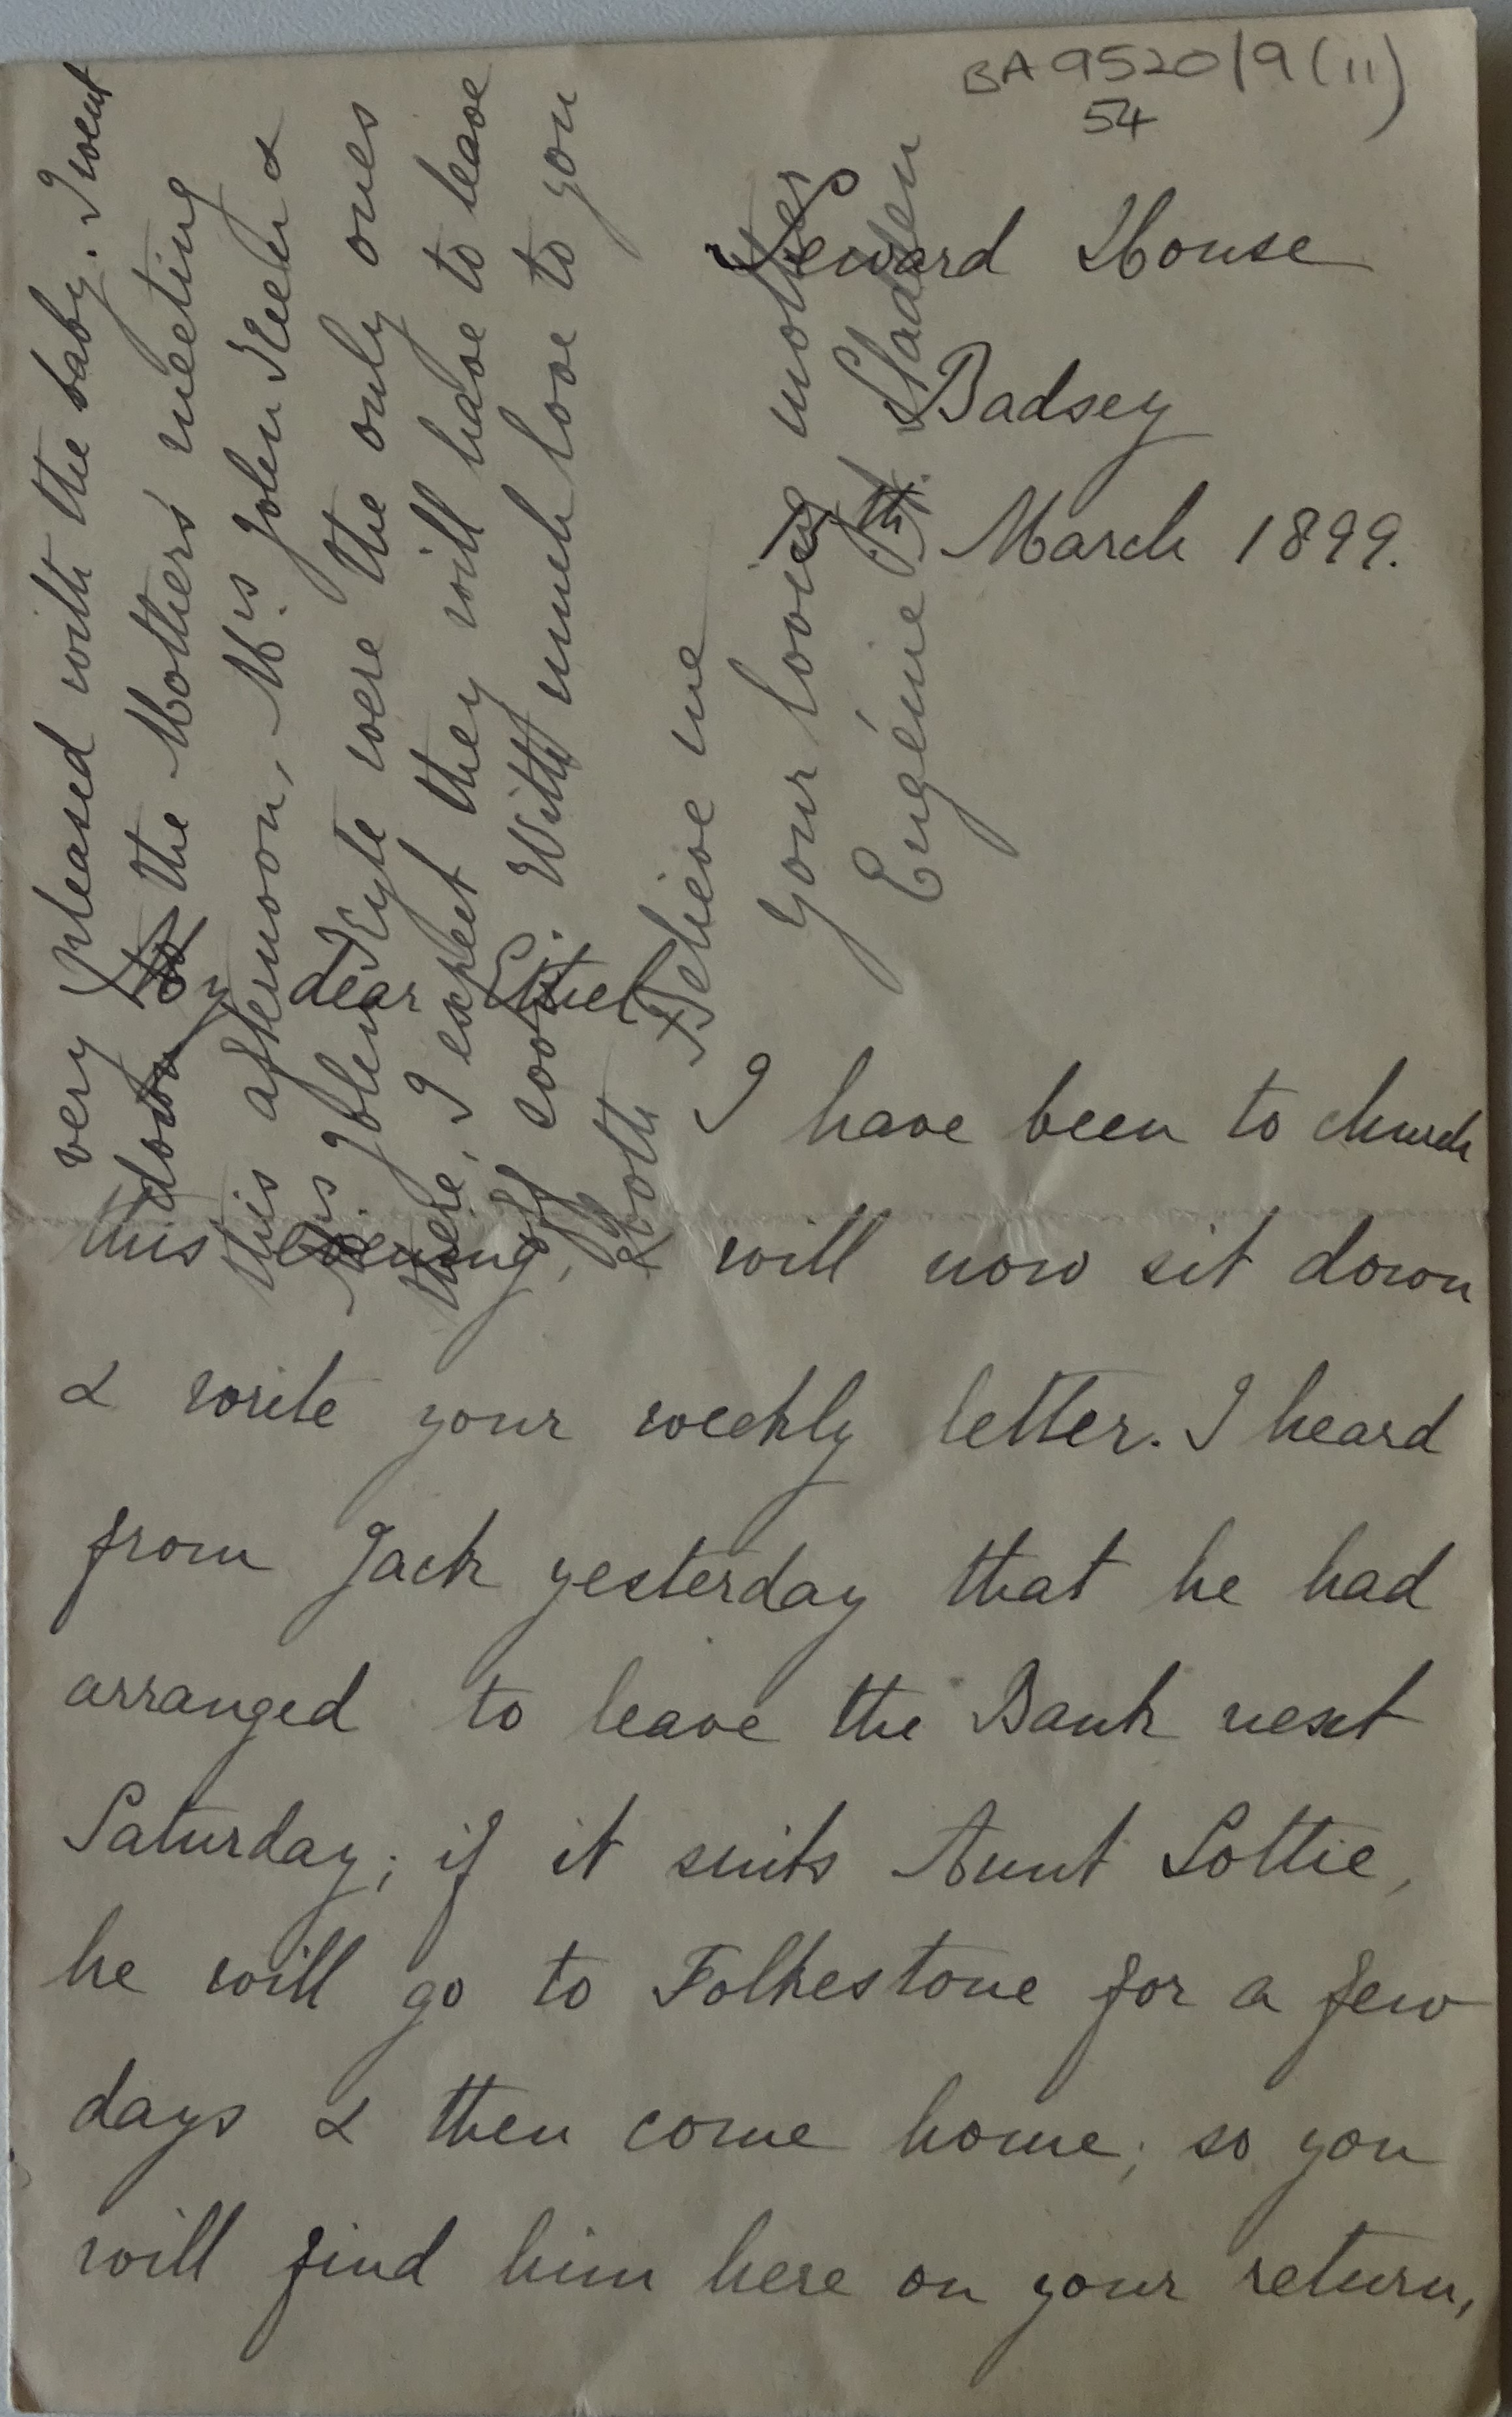 BA 9520/9 (11)
54
Seward House
Badsey
15th March 1899.
My dear Ethel
I have been to church
this evening, & will now sit down
& write your weekly letter. I heard
from Jack yesterday that he had
arranged to leave the Bank next
Saturday; if it suits Aunt Lottie,
he will go to Folkestone for a few
days & then come home; so you
will find him here on your return,
very pleased with the baby. I went
down to the Mothers meeting
this afternoon, Mrs John Keen &
Mrs Joblen Kyte were the only ones
there, I expect they will have to leave
off coming. With much love to you
both Believe me
Your loving mother
Eugénie N. Sladden